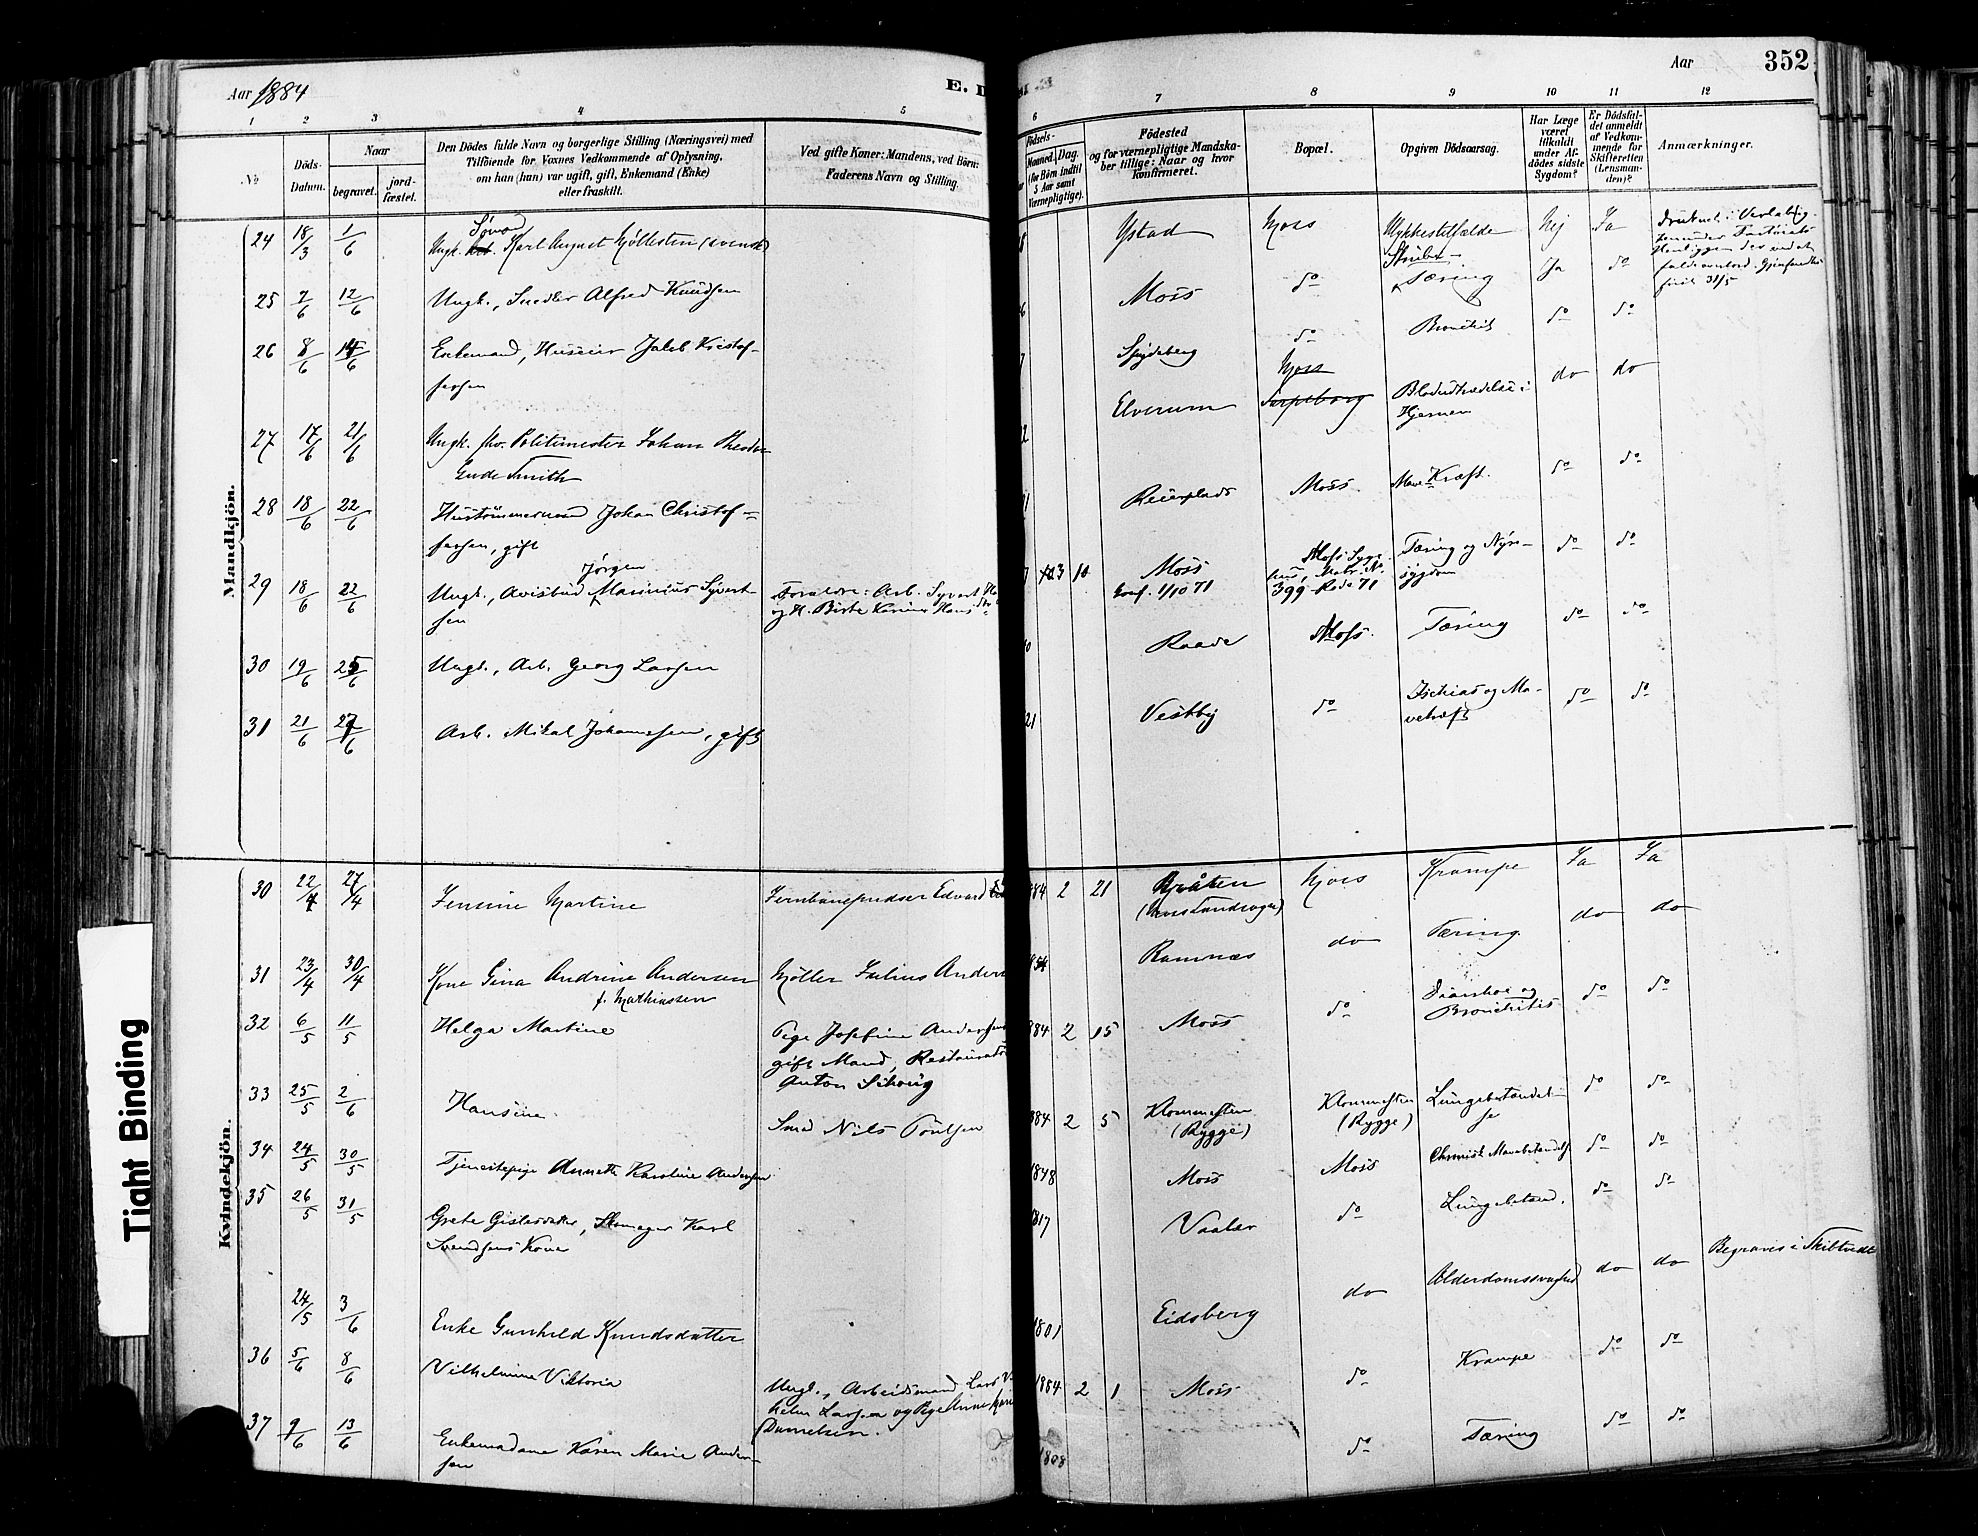 Aar 1884
E. D
Aar
352
1 2 3 4 5 6 7 8 9 10 11 12
No
Döds-Datum.
Naar
begravet.
jord-fæstet.
Den Dödes fulde Navn og borgerlige Stilling (Næringsvei) med
Tilföiende for Voxnes Vedkommende af Oplysning,
om han (hun) var ugift, gift, Enkemand (Enke)
eller fraskilt.
Ved gifte Koner: Mandens, ved Börn:
Faderens Navn og Stilling.
Födsels-
Maaned. Dag.
(for Börn indtil
5 Aar samt
Værnepligtige).
Födested
og for værnepligtige Mandska-
ber tillige: Naar og hvor
konfirmeret.
Bopæl.
Opgiven Dödsaarsag.
Har Læge
været
tilkaldt
under Af-
dödes sidste
Sygdom?
Er Dödsfal-
det anmeldt
af Vedkom-
mende for
Skifteretten
(Lensman-
den)?
Anmærkninger.
Mandkjön.
24 18/3 1/6 Ungk. Karl August Mjöllesten (svensk) Ystad Moss Ulykkestilfælde Nej Ja
25 7/6 12/6 Ungk., Snedker Alfred Knudsen Moss do Strube-Tæring Ja do
26 8/6 14/6 Enkemand, Huseier Jakob Kristof-
fersen Spydeberg do Bronchit do do
27 17/6 21/6 Ungk. fhv. Politimester Johan Theodor
Gude Smith Elverum Sarpsborg Moss Blodudtrædelse i
Hjernen do do
28 18/6 22/6 Hustømmermand Johan Christof-
fersen, gift Reierplads Moss Mave-Kræft. do do
29 18/6 22/6 Ungk., Avisbud Jørgen Marinius Syvert-
sen Forældre: Arb. Syvert
og H. Birte Karine 3 10 Moss
konf. 1/10 71 Moss Syge-
hus, Matr. No
399 Rode 71 Tæring og Nyre-
sygdom do do
30 19/6 25/6 Ungk., Arb. Georg Larsen Raade Moss. Tæring do do
31 21/6 27/6 Arb. Mikal Johannesen, gift 21 Vestby do Ischias og Ma-
vekræft do do
Kvindekjön.
30 22/4 27/4 Jensine Martine Jernbanepudser Edvard 884 2 21 Bråten
(Moss Landsogn) Moss Krampe Ja Ja
31 23/4 30/4 Kone Gina Andrine Andersen
f. Mathiassen Møller Julius Ander 854 Ramnæs do Tæring. do do
32 6/5 11/5 Helga Martine Pige Josefine Andersen
gift Mand, Restauratør
Anton Sikong 884 2 15 Moss do Diarrhoe og
Bronchitis do do
33 25/5 2/6 Hansine Smed Nils Poulsen 884 2 5 Klommesten
(Rygge) Klommesten
(Rygge) Lungebetændel-
se do do
34 24/5 30/5 Tjenestepige Annette Karoline Andersen 1848 Moss Moss Chronisk Mavebetændelse do do
35 26/5 31/5 Grete Gislesdatter, Skomager Karl
Svendsens Kone 1817 Vaaler do Lungebetænd. do do
24/5 3/6 Enke Gunhild Knudsdatter 1801 Eidsberg do Alderdomssvaghed do do Begraves i Skibtvedt
36 5/6 8/6 Vilhelmine Viktoria Ungk., Arbeidsmand Lars Vil
helm Larsen og Pige Anne
Danielsen. 1884 2 1 Moss do Krampe do do
37 9/6 13/6 Enkemadame Karen Marie Ander-
sen 1808 do Tæring do do
Tight Binding